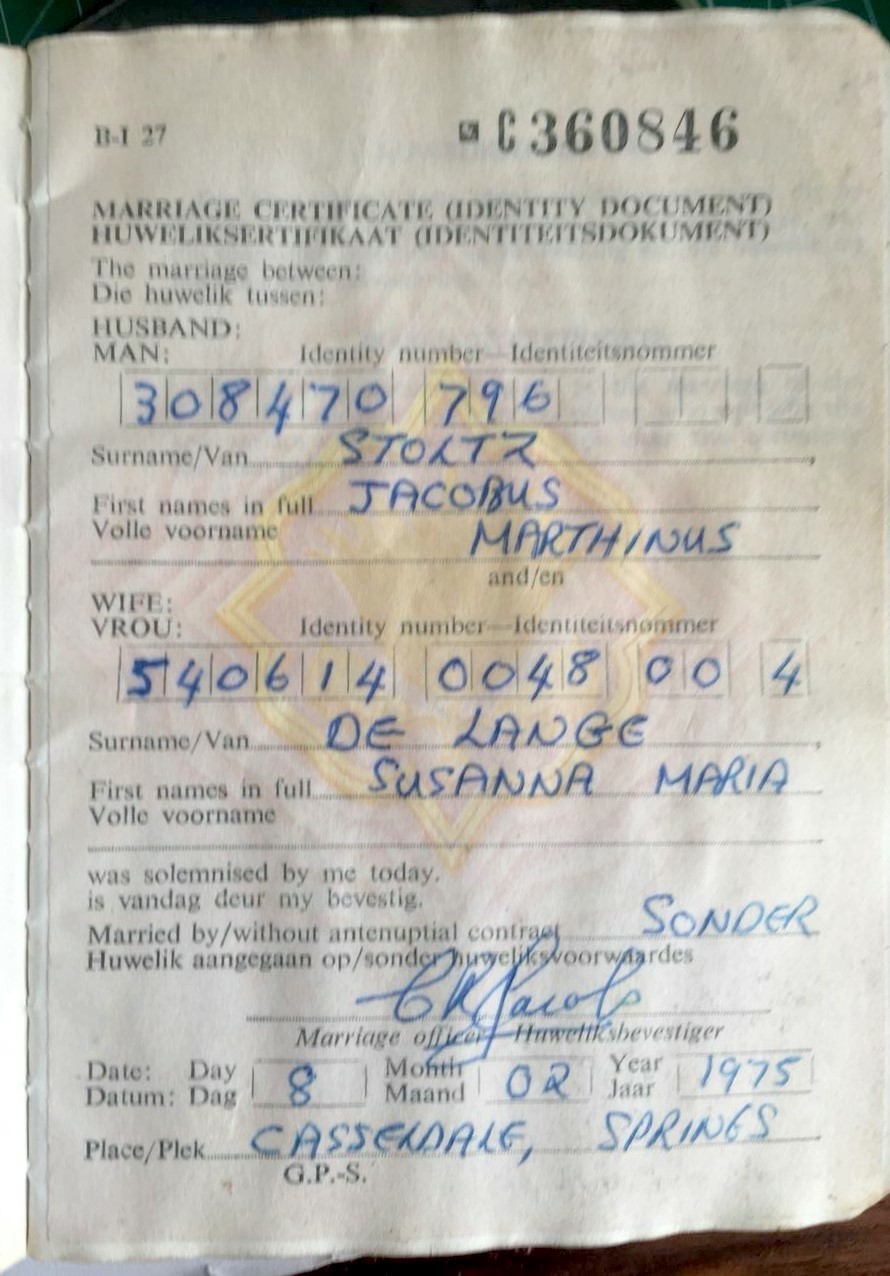 B-I 27 C360846
MARRIAGE CERTIFICATE (IDENTITY DOCUMENT)
HUWELIKSERTIFIKAAT (IDENTITEITSDOKUMENT)
The marriage between:
Die huwelik tussen:
HUSBAND:
MAN: Identity number—Identiteitsnommer
308470 796
Surname/Van STOLTZ,
First names in full JACOBUS
Volle voorname MARTHINUS
and/en
WIFE:
VROU: Identity number—Identiteitsnommer
540614 0048 00 4
Surname/Van DE LANGE,
First names in full SUSANNA MARIA
Volle voorname
was solemnised by me today.
is vandag deur my bevestig.
Married by/without antenuptial contract SONDER
Huwelik aangegaan op/sonder huweliksvoorwaardes
Marriage officer—Huweliksbevestiger
Date: Day 8 Month 02 Year 1975
Datum: Dag Maand Jaar
Place/Plek CASSELDALE, SPRINGS
G.P.-S.